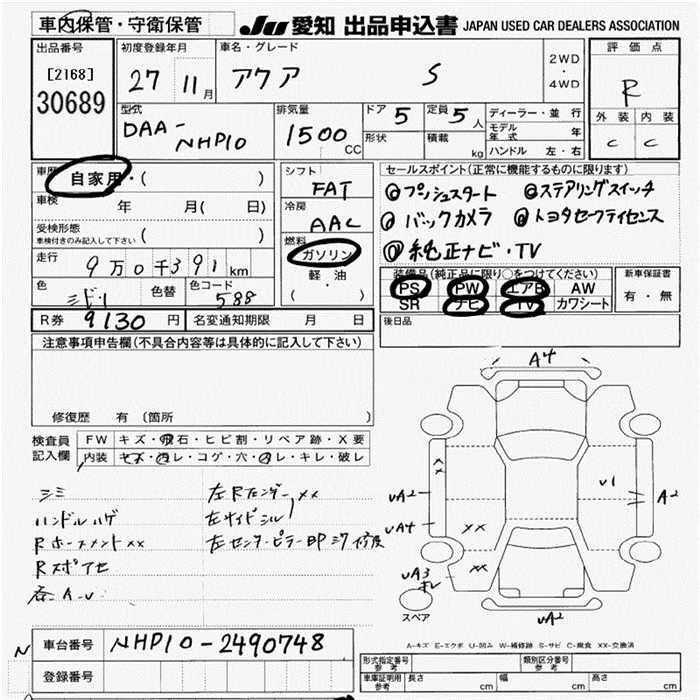 車内保管・守衛保管
JU 愛知 出品申込書 JAPAN USED CAR DEALERS ASSOCIATION
出品番号
[2168]
30689
初度登録年月
27 11月
車名・グレード
アクア S
2WD
・
4WD
評価点
R
外装 内装
C C
型式
DAA-
NHP10
排気量
1500 CC
ドア 5
定員 5人
形状
積載 kg
ディーラー・並行
モデル年式 年
ハンドル 左・右
車歴
自家用・( )
車検 年 月( 日)
受検形態
車検付きのみ記入して下さい ( )
走行
9万0千391km
色
色替
色コード
588
シフト
FAT
冷房
AAC
燃料
ガソリン
軽・油
( ・ )
セールスポイント(正常に機能するものに限ります)
◎プッシュスタート ◎ステアリングスイッチ
◎バックカメラ ◎トヨタセーフティセンス
◎純正ナビ・TV
装備品(純正品に限り○をつけてください)
PS PW エアB AW
SR ナビ TV カワシート
新車保証書
有・無
後日品
R券 9130円
名変通知期限 月 日
注意事項申告欄(不具合内容等は具体的に記入して下さい)
修復歴 有 〔箇所 〕
検査員
記入欄
FW キズ・飛石・ヒビ割・リペア跡・X要
内装 キズ・汚レ・コゲ・穴・スレ・キレ・破レ
シミ
ハンドルハゲ
Rスポイセ
各A・U
左Rフェンダーxx
左サイドシル
A4
UA2
UA4
UA3
xx
xx
U1
A2
UA2
スペア
A-キズ E-エクボ U-凹み W-補修跡 S-サビ C-腐食 XX-交換済
N
車台番号 NHP10-2490748
登録番号
形式指定番号
参考
類別区分番号
参考
車庫証明用
参考
長さ cm 幅 cm 高さ cm